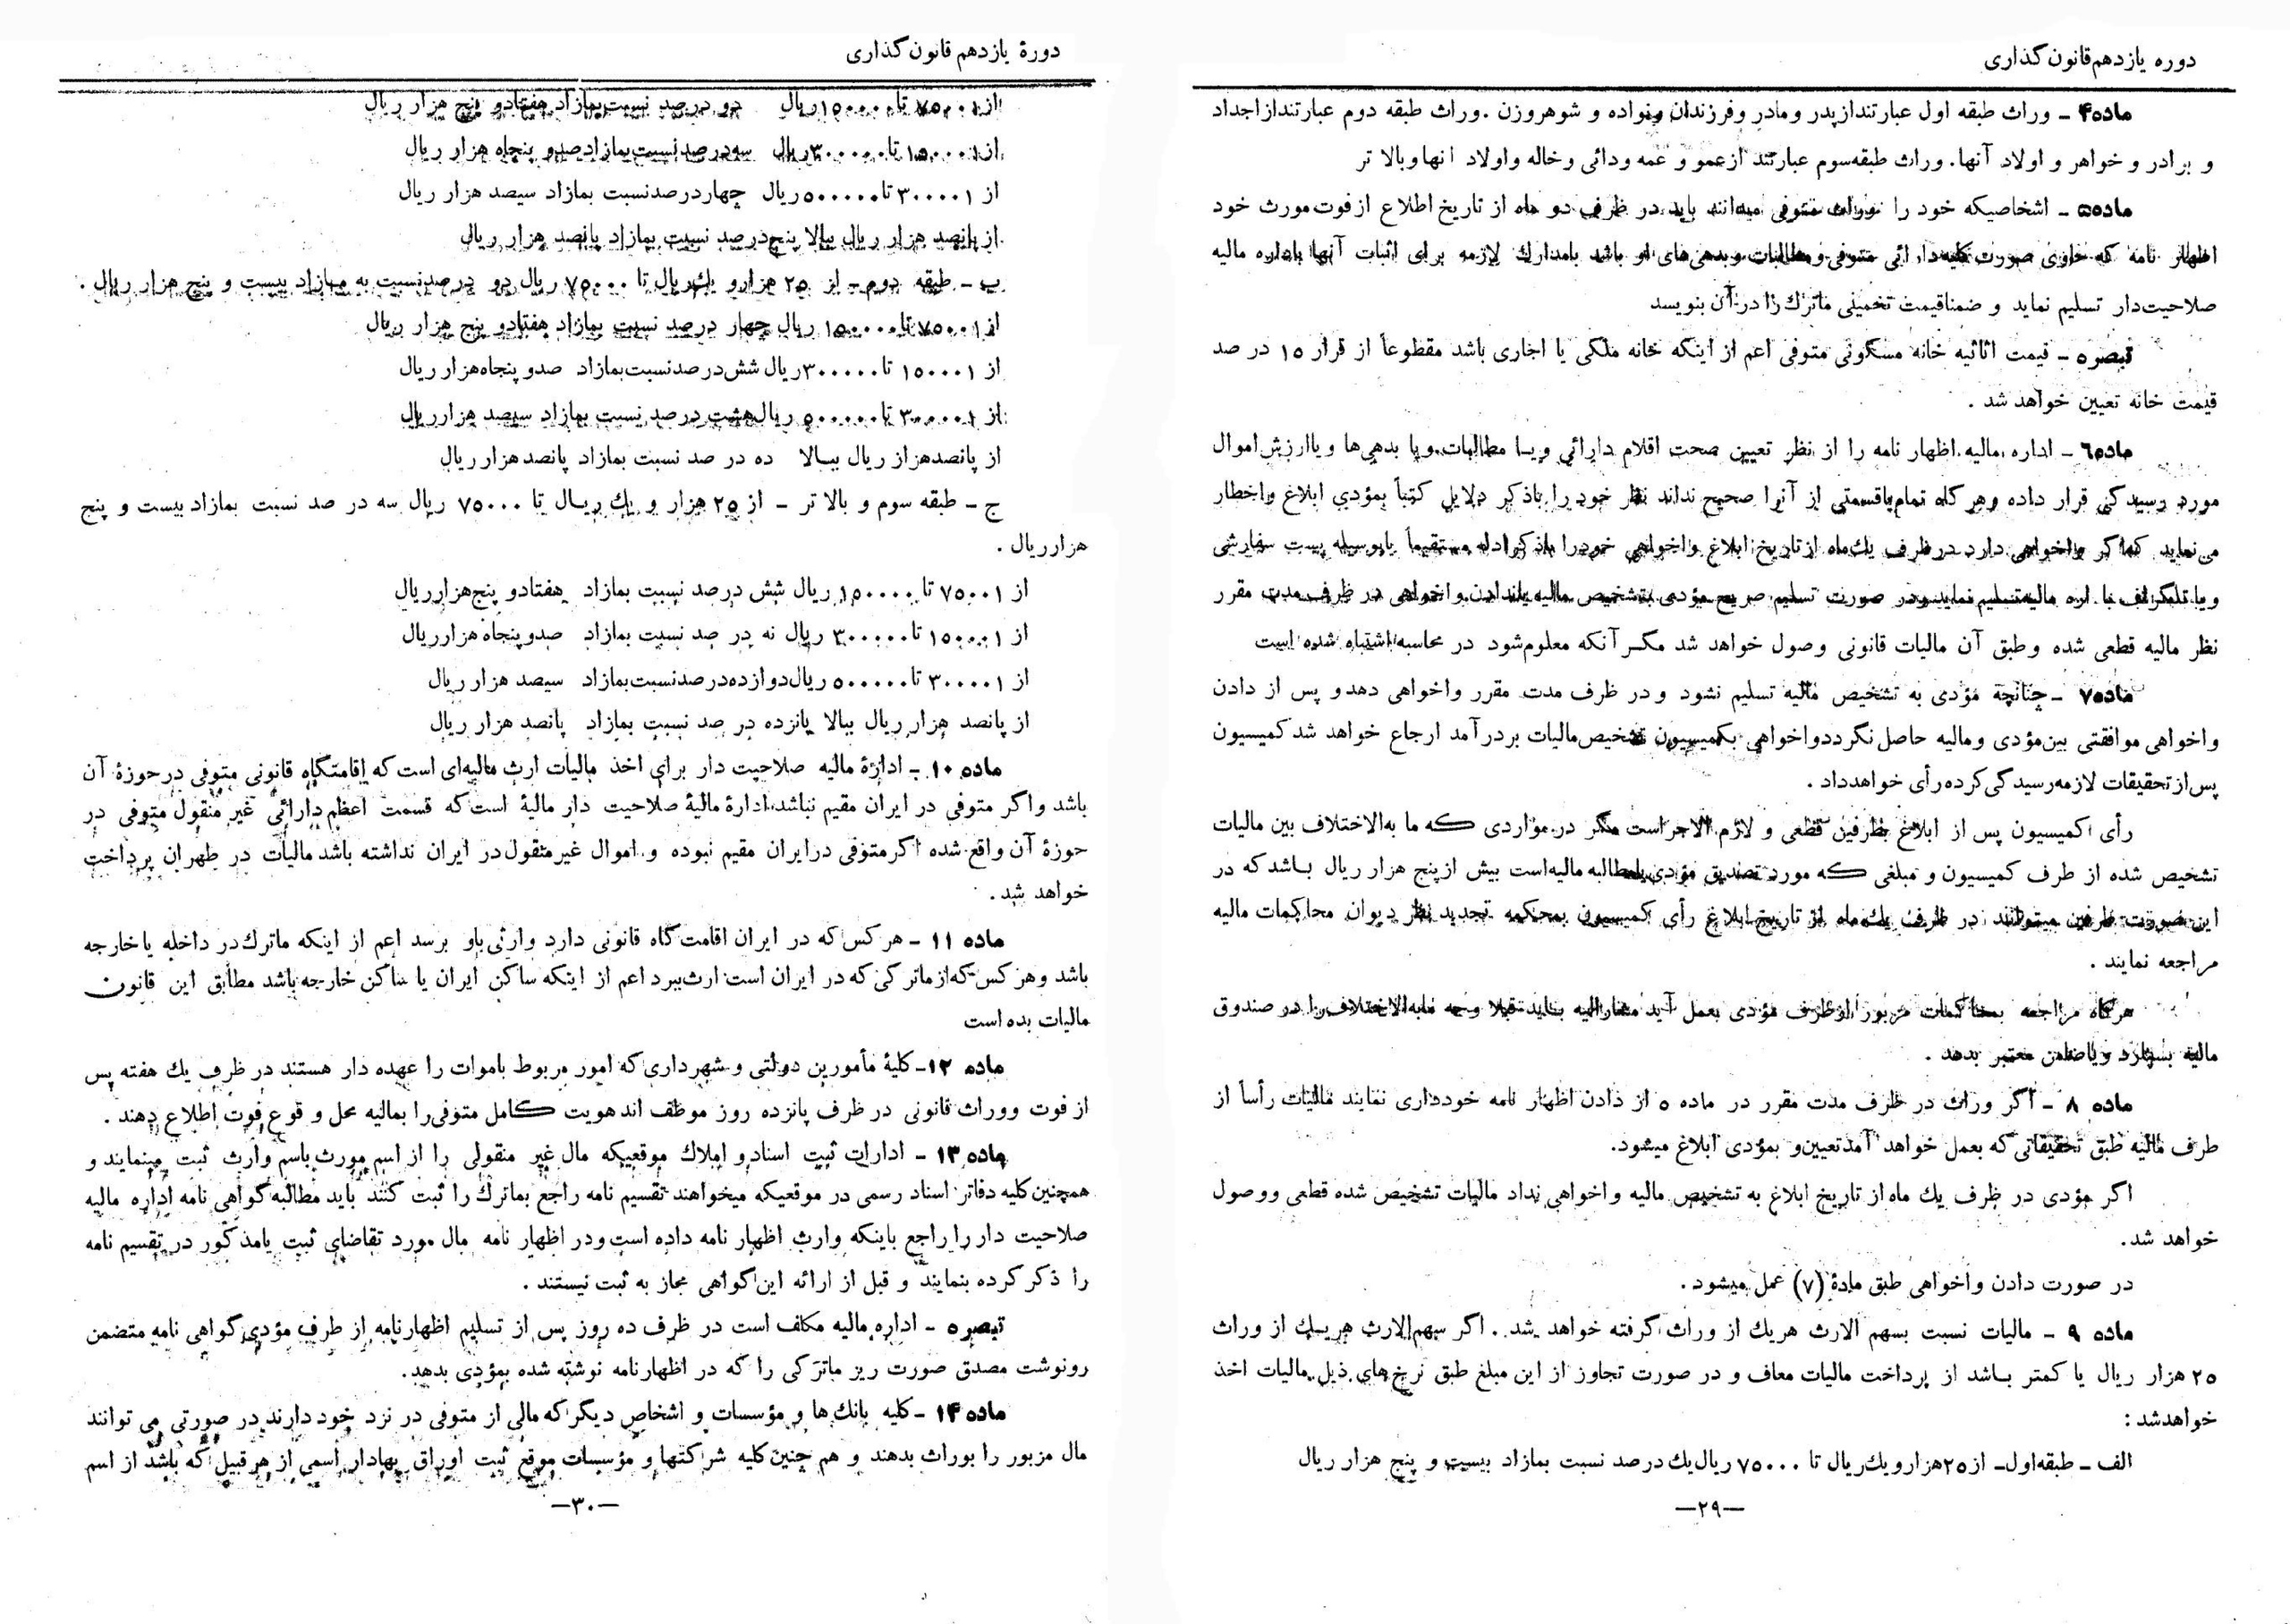 دوره یازدهم قانون گذاری
ماده۴ - وراث طبقه اول عبارتنداز پدر ومادر وفرزندان ونواده و شوهروزن . وراث طبقه دوم عبارتنداز اجداد
و برادر و خواهر و اولاد آنها. وراث طبقه سوم عبارتند ازعمو و عمه ودائی وخاله واولاد انها وبالا تر
ماده۵ - اشخاصیکه خود را وراث متوفی میدانند باید در ظرف دو ماه از تاریخ اطلاع از فوت مورث خود
اظهار نامه که حاوی صورت کلیه دارائی متوفی و مطالبات و بدهی‌های او باشد بامدارك لازمه برای اثبات آنها باداره مالیه
صلاحیت‌دار تسلیم نماید و ضمناقیمت تخمینی ماترك را در آن بنویسد
تبصره - قیمت اثاثیه خانه مسکونی متوفی اعم از اینکه خانه ملکی یا اجاری باشد مقطوعاً از قرار ۱۵ در صد
قیمت خانه تعیین خواهد شد .
ماده۶ - اداره مالیه اظهار نامه را از نظر تعیین صحت اقلام دارائی ویا مطالبات ویا بدهی‌ها ویاارزش اموال
مورد رسیدگی قرار داده وهرگاه تمام یاقسمتی از آنرا صحیح نداند نظر خود را باذکر دلایل کتباً بمؤدی ابلاغ واخطار
می‌نماید که‌اگر واخواهی دارد درظرف یك‌ماه ازتاریخ ابلاغ واخواهی خودرا باذکر ادله مستقیماً یابوسیله پست سفارشی
ویا تلگراف باداره مالیه‌تسلیم نماید ودر صورت تسلیم صریح مؤدی بتشخیص مالیه یاندادن واخواهی در ظرف مدت مقرر
نظر مالیه قطعی شده وطبق آن مالیات قانونی وصول خواهد شد مگر آنکه معلوم‌شود در محاسبه اشتباه شده است
ماده۷ - چنانچه مؤدی به تشخیص مالیه تسلیم نشود و در ظرف مدت مقرر واخواهی دهدو پس از دادن
واخواهی موافقتی بین‌مؤدی ومالیه حاصل نگرددواخواهی بکمیسیون تشخیص‌مالیات بردرآمد ارجاع خواهد شد کمیسیون
پس‌از تحقیقات لازمه رسیدگی کرده رأی خواهدداد .
رأی کمیسیون پس از ابلاغ بطرفین قطعی و لازم الاجراست مگر در مواردی که ما به‌الاختلاف بین مالیات
تشخیص شده از طرف کمیسیون و مبلغی که مورد تصدیق مؤدی یامطالبه مالیه‌است بیش از پنج هزار ریال باشدکه در
این‌صورت طرفین میتوانند در ظرف یك‌ماه از تاریخ ابلاغ رأی کمیسیون بمحکمه تجدید نظر دیوان محاکمات مالیه
مراجعه نمایند .
هرگاه مراجعه بمحاکمات مزبور ازطرف مؤدی بعمل آید مشارالیه باید قبلا وجه مابه‌الاختلاف را در صندوق
مالیه بسپارد ویاضامن معتبر بدهد .
ماده ۸ - اگر وراث در ظرف مدت مقرر در ماده ۵ از دادن اظهار نامه خودداری نمایند مالیات رأساً از
طرف مالیه طبق تحقیقاتی که بعمل خواهد آمدتعیین‌و بمؤدی ابلاغ میشود.
اگر مؤدی در ظرف یك ماه از تاریخ ابلاغ به تشخیص مالیه واخواهی نداد مالیات تشخیص شده قطعی ووصول
خواهد شد.
در صورت دادن واخواهی طبق مادهٔ (۷) عمل میشود .
ماده ۹ - مالیات نسبت بسهم الارث هریك از وراث گرفته خواهد شد . اگر سهم‌الارث هریك از وراث
۲۵ هزار ریال یا کمتر باشد از پرداخت مالیات معاف و در صورت تجاوز از این مبلغ طبق نرخ‌های ذیل مالیات اخذ
خواهدشد :
الف - طبقه‌اول- از۲۵هزارویك‌ریال تا ۷۵۰۰۰ریال‌یك درصد نسبت بمازاد بیست و پنج هزار ریال
—۲۹—
دورهٔ یازدهم قانون گذاری
از۷۵۰۰۱ تا ۱۵۰۰۰۰ریال دو درصد نسبت‌بمازاد هفتادو پنج هزار ریال
از۱۵۰۰۰۱ تا۳۰۰۰۰۰ریال سه‌درصدنسبت‌بمازادصدو پنجاه هزار ریال
از ۳۰۰۰۰۱ تا۵۰۰۰۰۰ریال چهاردرصدنسبت بمازاد سیصد هزار ریال
از پانصد هزار ریال ببالا پنج‌درصد نسبت بمازاد پانصد هزار ریال
ب - طبقه دوم - از ۲۵ هزارو یك‌ریال تا ۷۵۰۰۰ ریال دو درصدنسبت به مازاد بیست و پنج هزار ریال .
از۷۵۰۰۱ تا۱۵۰۰۰۰ ریال چهار درصد نسبت بمازاد هفتادو پنج هزار ریال
از ۱۵۰۰۰۱ تا۳۰۰۰۰۰ریال شش‌درصدنسبت‌بمازاد صدو پنجاه‌هزار ریال
از ۳۰۰۰۰۱ تا۵۰۰۰۰۰ ریال‌هشت درصد نسبت بمازاد سیصد هزارریال
از پانصدهزار ریال ببالا ده در صد نسبت بمازاد پانصد هزار ریال
ج - طبقه سوم و بالا تر - از ۲۵ هزار و یك ریال تا ۷۵۰۰۰ ریال سه در صد نسبت بمازاد بیست و پنج
هزارریال .
از ۷۵۰۰۱ تا ۱۵۰۰۰۰ ریال شش درصد نسبت بمازاد هفتادو پنج‌هزارریال
از ۱۵۰۰۰۱ تا۳۰۰۰۰۰ ریال نه در صد نسبت بمازاد صدو پنجاه هزارریال
از ۳۰۰۰۰۱ تا۵۰۰۰۰۰ ریال‌دوازده‌درصدنسبت‌بمازاد سیصد هزار ریال
از پانصد هزار ریال ببالا پانزده در صد نسبت بمازاد پانصد هزار ریال
ماده ۱۰ - ادارهٔ مالیه صلاحیت دار برای اخذ مالیات ارث مالیه‌ای است که اقامتگاه قانونی متوفی درحوزهٔ آن
باشد واگر متوفی در ایران مقیم نباشد ادارهٔ مالیهٔ صلاحیت دار مالیهٔ است‌که قسمت اعظم دارائی غیر منقول متوفی در
حوزهٔ آن واقع شده اگر متوفی درایران مقیم نبوده و اموال غیرمنقول‌در ایران نداشته باشد مالیات در طهران پرداخت
خواهد شد .
ماده ۱۱ - هرکس‌که در ایران اقامت‌گاه قانونی دارد وارثی‌باو برسد اعم از اینکه ماترك‌در داخله یاخارجه
باشد وهرکس‌که‌ازماترکی‌که در ایران است ارث‌ببرد اعم از اینکه ساکن ایران یا ساکن خارجه‌باشد مطابق این قانون
مالیات بده است
ماده ۱۲- کلیهٔ مأمورین دولتی و شهرداری که امور مربوط باموات را عهده دار هستند در ظرف یك هفته پس
از فوت ووراث قانونی در ظرف پانزده روز موظف اند هویت کامل متوفی را بمالیه محل و قوع فوت اطلاع دهند .
ماده ۱۳ - ادارات ثبت اسنادو املاك موقعیکه مال غیر منقولی را از اسم مورث باسم وارث ثبت مینمایند و
همچنین کلیه دفاتر اسناد رسمی در موقعیکه میخواهند تقسیم نامه راجع بماترك را ثبت کنند باید مطالبه گواهی نامه اداره مالیه
صلاحیت دار را راجع باینکه وارث اظهار نامه داده است ودر اظهار نامه مال مورد تقاضای ثبت یامذکور در تقسیم نامه
را ذکر کرده بنمایند و قبل از ارائه این گواهی مجاز به ثبت نیستند .
تبصره - اداره مالیه مکلف است در ظرف ده روز پس از تسلیم اظهارنامه از طرف مؤدی گواهی نامه متضمن
رونوشت مصدق صورت ریز ماترکی را که در اظهارنامه نوشته شده بمؤدی بدهد.
ماده ۱۴ - کلیه بانك ها و مؤسسات و اشخاص دیگر که مالی از متوفی در نزد خود دارند در صورتی می توانند
مال مزبور را بوراث بدهند و هم چنین کلیه شرکتها و مؤسسات موقع ثبت اوراق بهادار اسمی از هر قبیل که باشد از اسم
—۳۰—